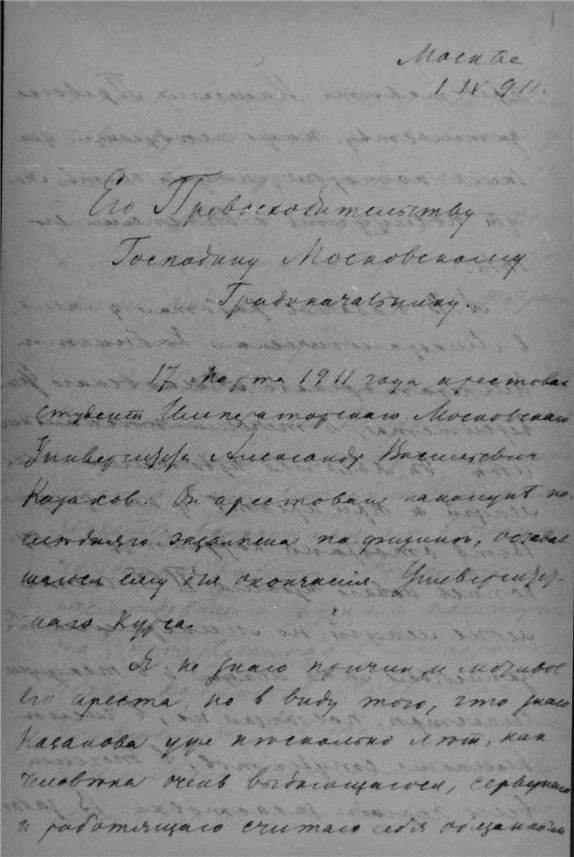 1
Москва
1 IV 911.
Его Превосходительству
Господину Московскому
Градоначальнику.
17 марта 1911 года арестован
студент Императорскаго Московскаго
Университета Александр Васильевич
Казаков. Он арестован наканунѣ по-
слѣдняго экзамена по физикѣ, остав-
шагося ему для окончанія Университет-
скаго Курса.
Я не знаю причин и мотивов
его ареста, но в виду того, что знаю
Казакова уже нѣсколько лѣт, как
человѣка очень выдающагося, серьезнаго
и работящаго считаю себя обязанным